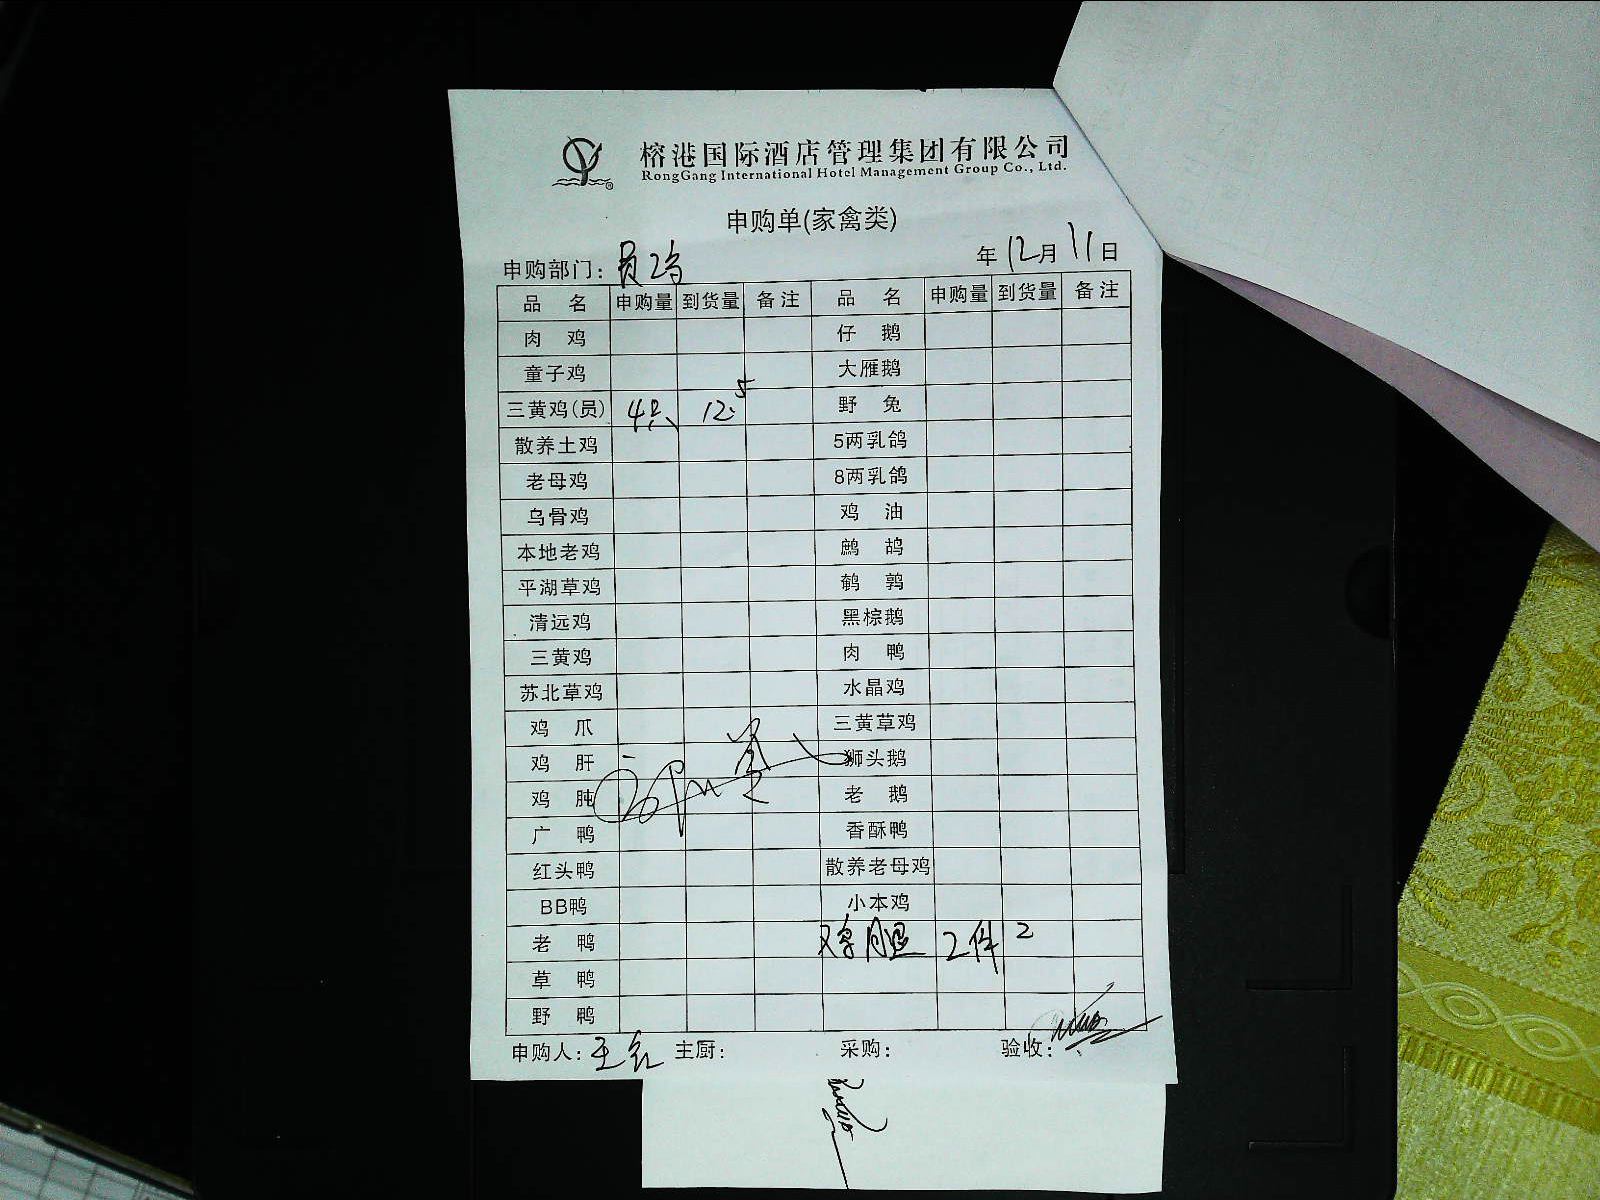 榕港国际酒店管理集团有限公司
RongGang International Hotel Management Group Co., Ltd.
申购单(家禽类)
申购部门: 年 12 月 11 日
品 名 申购量 到货量 备注 品 名 申购量 到货量 备注
肉 鸡 仔 鹅
童子鸡 大雁鹅
三黄鸡(员) 4只 12.5 野 兔
散养土鸡 5两乳鸽
老母鸡 8两乳鸽
乌骨鸡 鸡 油
本地老鸡 鹧 鸪
平湖草鸡 鹌 鹑
清远鸡 黑棕鹅
三黄鸡 肉 鸭
苏北草鸡 水晶鸡
鸡 爪 三黄草鸡
鸡 肝 狮头鹅
鸡 肫 老 鹅
广 鸭 香酥鸭
红头鸭 散养老母鸡
BB鸭 小本鸡
老 鸭 鸡腿 2件 2
草 鸭
野 鸭
申购人: 主厨: 采购: 验收: